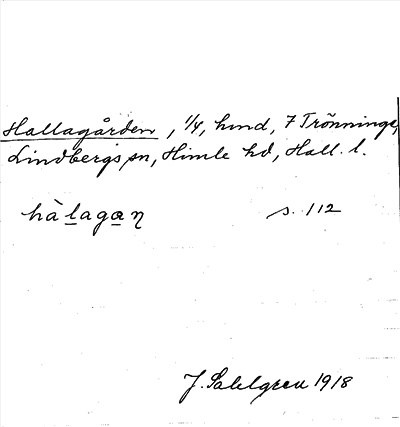 Hallagården, 1/4, hmd, 7 Trönninge,
Lindbergs sn, Himle hd, Hall. l.
hàlagaɳ s. 112
J. Sahlgren 1918